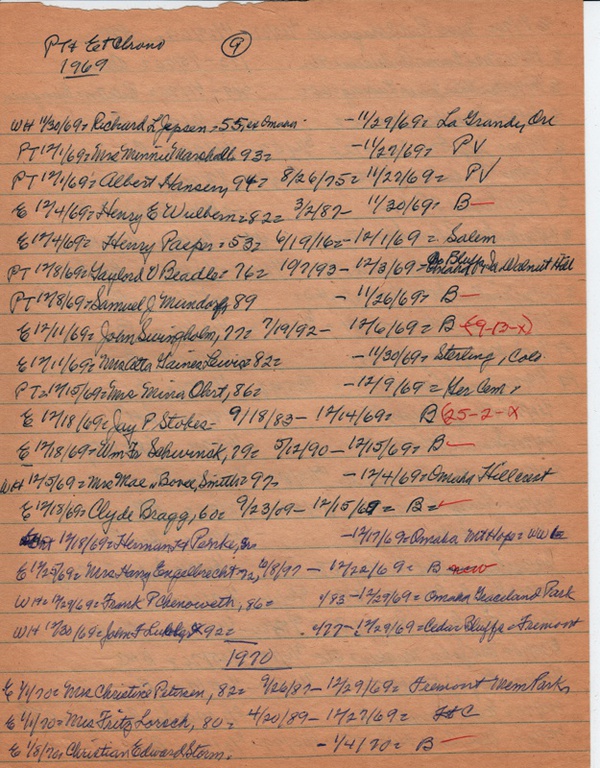 PT & Et Chrono 9
1969
WH 11/30/69= Richard L Jepsen= 55, ex Omaha - 11/29/69= La Grande, Ore
PT 12/1/69= Mrs Minnie Marshall= 93= - 11/27/69= PV
PT 12/1/69= Albert Hansen, 94= 8/26/75= 11/27/69= PV
E 12/4/69= Henry E Wulbern= 82= 3/2/87- 11/30/69= B-
E 12/4/69= Henry Pasper= 53= 6/19/16= - 12/1/69= Salem
PT 12/8/69= Gaylord V Beadle= 76= 10/7/93- 12/3/69= Walnut Hill
PT 12/8/69= Samuel J Mundorf, 89 - 11/26/69= B-
E 12/11/69= John Swingholm, 77= 7/19/92- 12/6/69= B (9-13-X)
E 12/11/69= Mrs Etta Gaines Lewis= 82= - 11/30/69= Sterling, Colo
PT= 12/15/69= Mrs Mina Olert, 86= - 12/9/69= Her Cem
E 12/18/69= Jay P Stokes- 9/18/83- 12/14/69= B (25-2-X
E 12/18/69= Wm Fr Schwinck, 79= 5/12/90- 12/15/69= B-
WH 12/5/69= Mrs Mae Boose, Smith= 97= - 12/4/69= Omaha Hillcrest
E 12/18/69= Clyde Bragg, 60= 9/23/09- 12/15/69= B=
12/18/69= Herman - 12/17/69= Omaha Mt Hope=
E 12/25/69= Mrs Henry Engelbrecht= 72, 10/8/97- 12/22/69= B
WH= 12/29/69= Frank P Chenoweth, 86= 4/83- 12/29/69= Omaha Graceland Park
WH 12/30/69= John F 92= 4/77- 12/29/69= Cedar Bluffs= Fremont
1970
E 1/1/70= Mrs Christine Petersen, 82= 9/26/87- 12/29/69= Fremont Mem Park
E 1/1/70= Mrs Fritz Lorsch, 80= 4/20/89- 12/27/69= C
E 1/8/70= Christian Edward Storm. - 1/4/70= B-